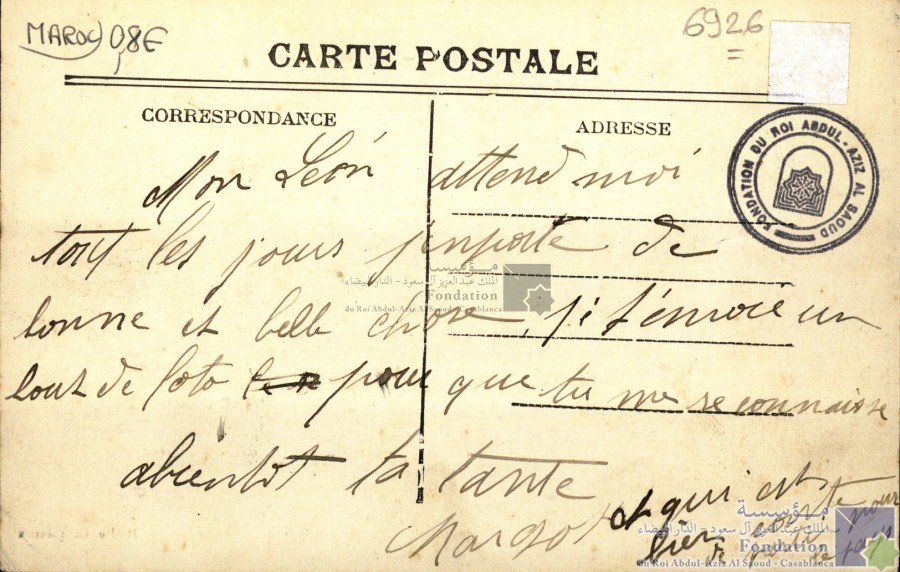 MAROC 08E
6926
CARTE POSTALE
CORRESPONDANCE
ADRESSE
FONDATION DU ROI ABDUL-AZIZ AL SAOUD
Mon León attend moi
tout les jours j'enporte de
bonne et belle chose, j'i t'envoie un
bout de foto pour que tu me reconnaisse
abientot ta tante
Margot et qui est
bien
de pour
de
مؤسسة
الملك عبد العزيز آل سعود - الدار البيضاء
Fondation
du Roi Abdul-Aziz Al Saoud - Casablanca
مؤسسة
الملك عبد العزيز آل سعود - الدار البيضاء
Fondation
du Roi Abdul-Aziz Al Saoud - Casablanca